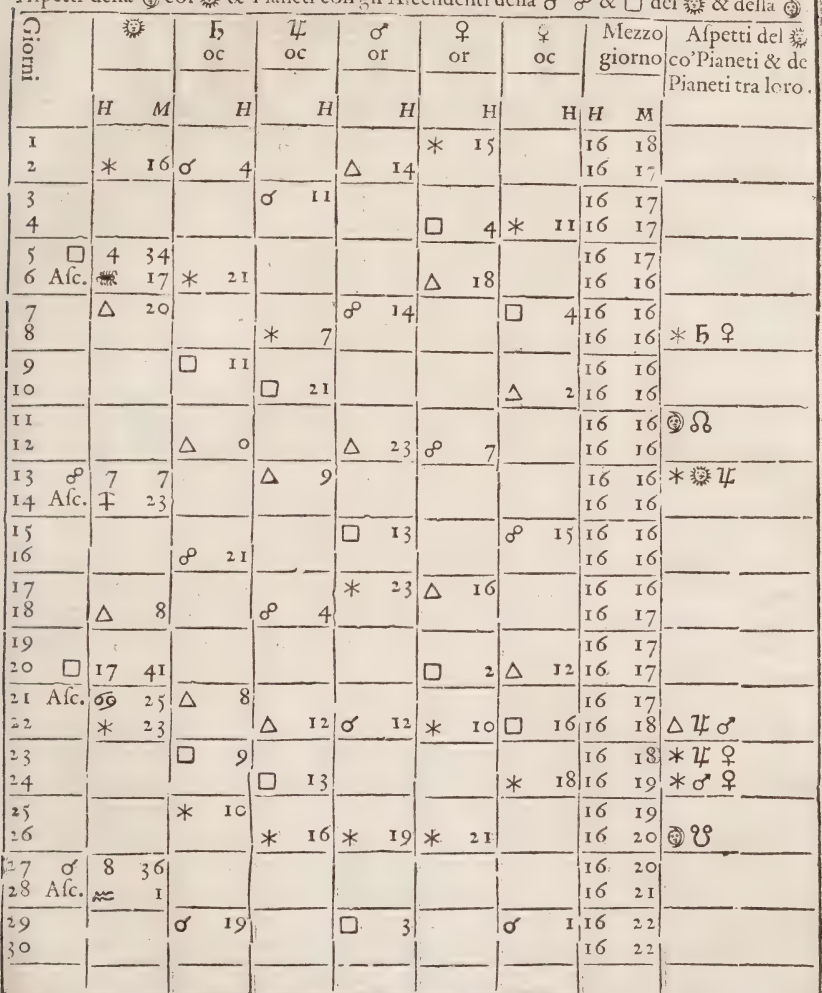 Aſpetti della ☽ col ☼ & Pianeti con gli Aſcendenti della ☌ ☍ & □ del ☼ & della ☽
Giorni ☼ ♄ oc ♃ oc ♂ or ♀ or ☿ oc Mezzo giorno Aſpetti del ☼ co'Pianeti & de Pianeti tra loro.
H M H H H H H H M
1 ⚹ 15 16 18
2 ⚹ 16 ☌ 4 △ 14 16 17
3 ☌ 11 16 17
4 □ 4 ⚹ 11 16 17
5 □ 4 34 16 17
6 Aſc. ♏ 17 ⚹ 21 △ 18 16 16
7 △ 20 ☍ 14 □ 4 16 16
8 ⚹ 7 16 16 ⚹ ♄ ♀
9 □ 11 16 16
10 □ 21 △ 2 16 16
11 16 16 ☽ ☊
12 △ 0 △ 23 ☍ 7 16 16
13 ☍ 7 7 △ 9 16 16 ⚹ ☼ ♃
14 Aſc. ♐ 23 16 16
15 □ 13 ☍ 15 16 16
16 ☍ 21 16 16
17 ⚹ 23 △ 16 16 16
18 △ 8 ☍ 4 16 17
19 16 17
20 □ 17 41 □ 2 △ 12 16 17
21 Aſc. ♋ 25 △ 8 16 17
22 ⚹ 23 △ 12 ☌ 12 ⚹ 10 □ 16 16 18 △ ♃ ♂
23 □ 9 16 18 ⚹ ♃ ♀
24 □ 13 ⚹ 18 16 19 ⚹ ♂ ♀
25 ⚹ 10 16 19
26 ⚹ 16 ⚹ 19 ⚹ 21 16 20 ☽ ☋
27 ☌ 8 36 16 20
28 Aſc. ♒ 1 16 21
29 ☌ 19 □ 3 ☌ 1 16 22
30 16 22